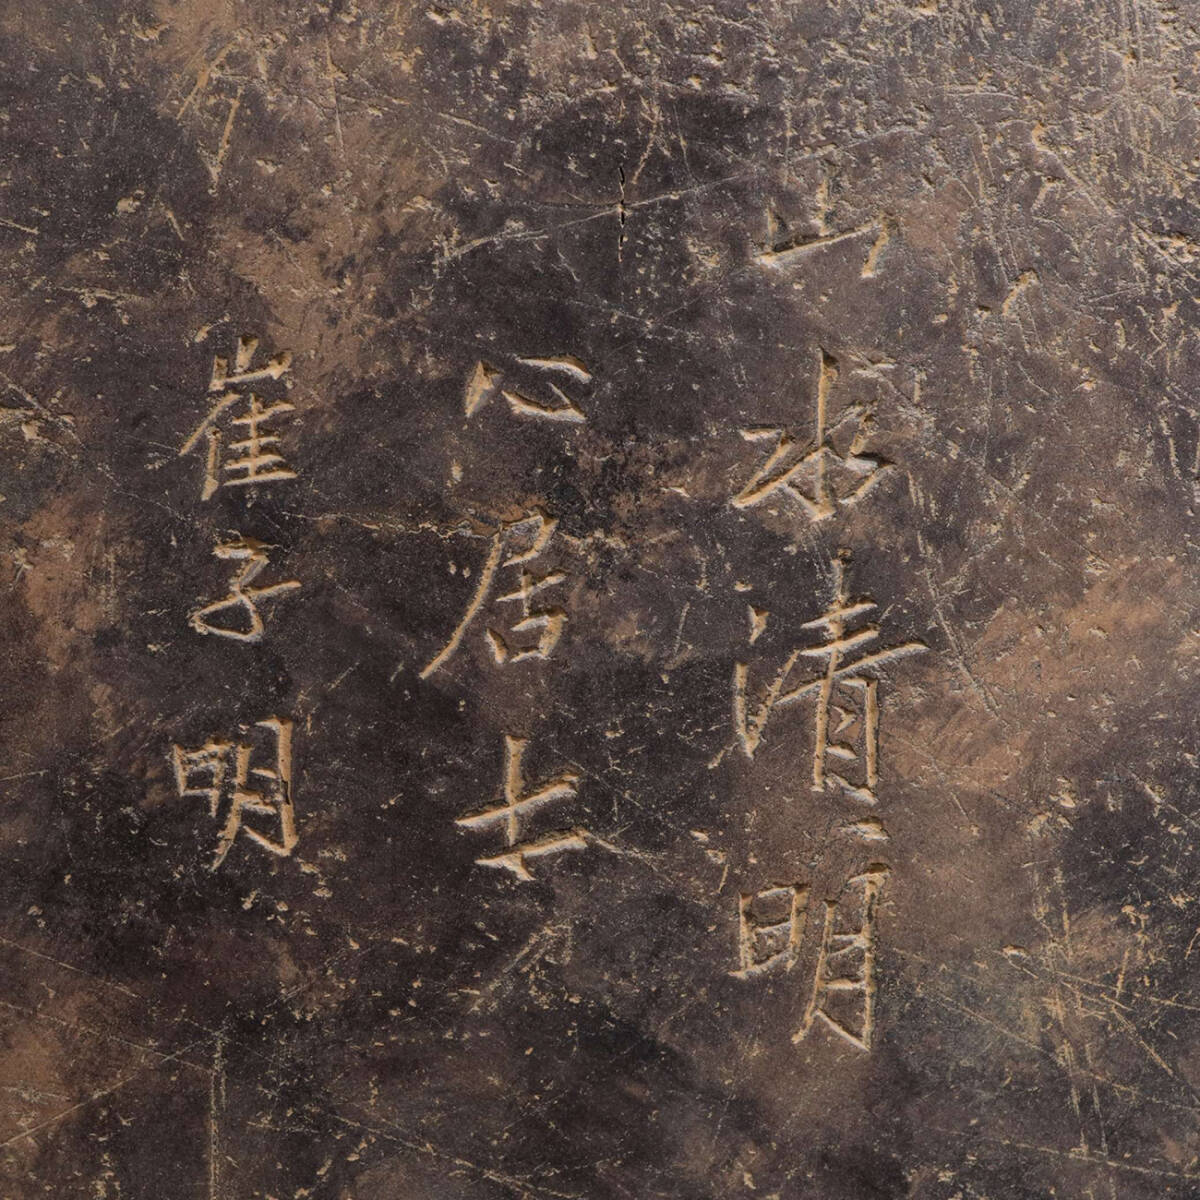 山水清明
心居士
崔子明